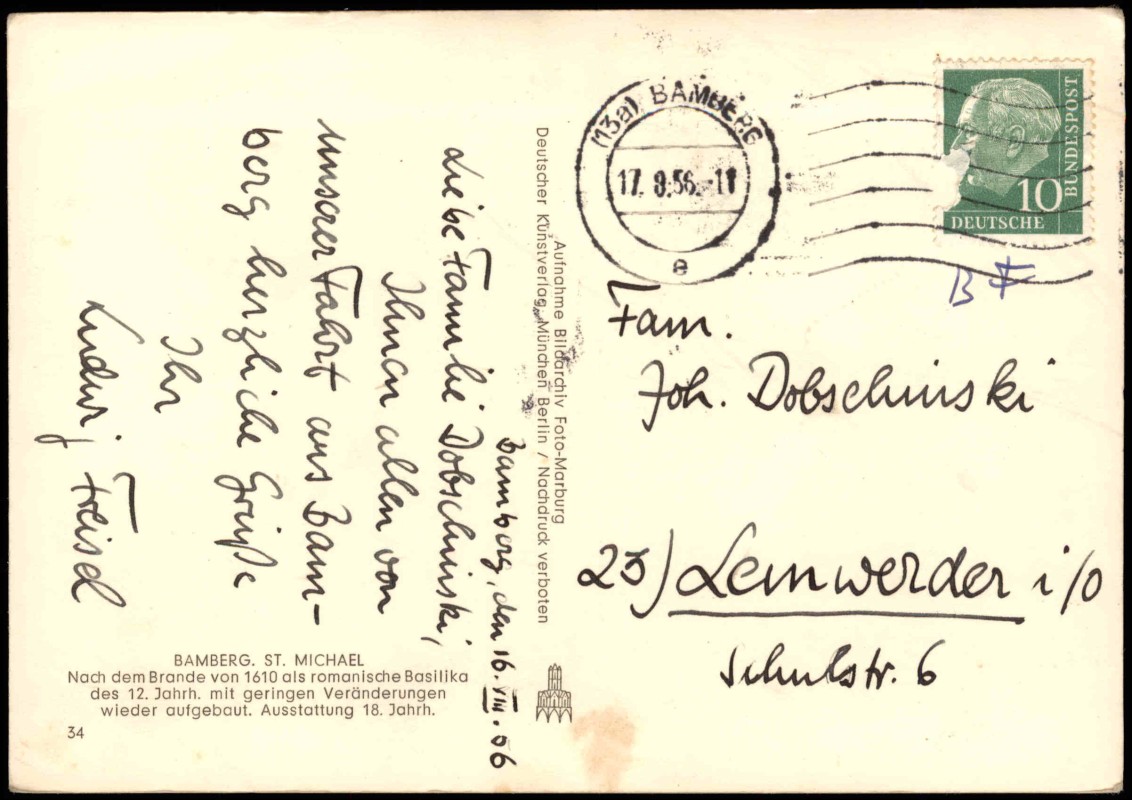 Bamberg, den 16. VIII. 56
Liebe Familie Dobschinski,
Ihnen allen von
unserer Fahrt aus Bam-
berg herzliche Grüße
Ihr
Ludwig Freisel
BAMBERG. ST. MICHAEL
Nach dem Brande von 1610 als romanische Basilika
des 12. Jahrh. mit geringen Veränderungen
wieder aufgebaut. Ausstattung 18. Jahrh.
34
Aufnahme Bildarchiv Foto-Marburg
Deutscher Kunstverlag München Berlin / Nachdruck verboten
(13a) BAMBERG
17. 8. 56.-11
e
10
DEUTSCHE
BUNDESPOST
Fam.
Joh. Dobschinski
23) Lemwerder i/O
Schulstr. 6